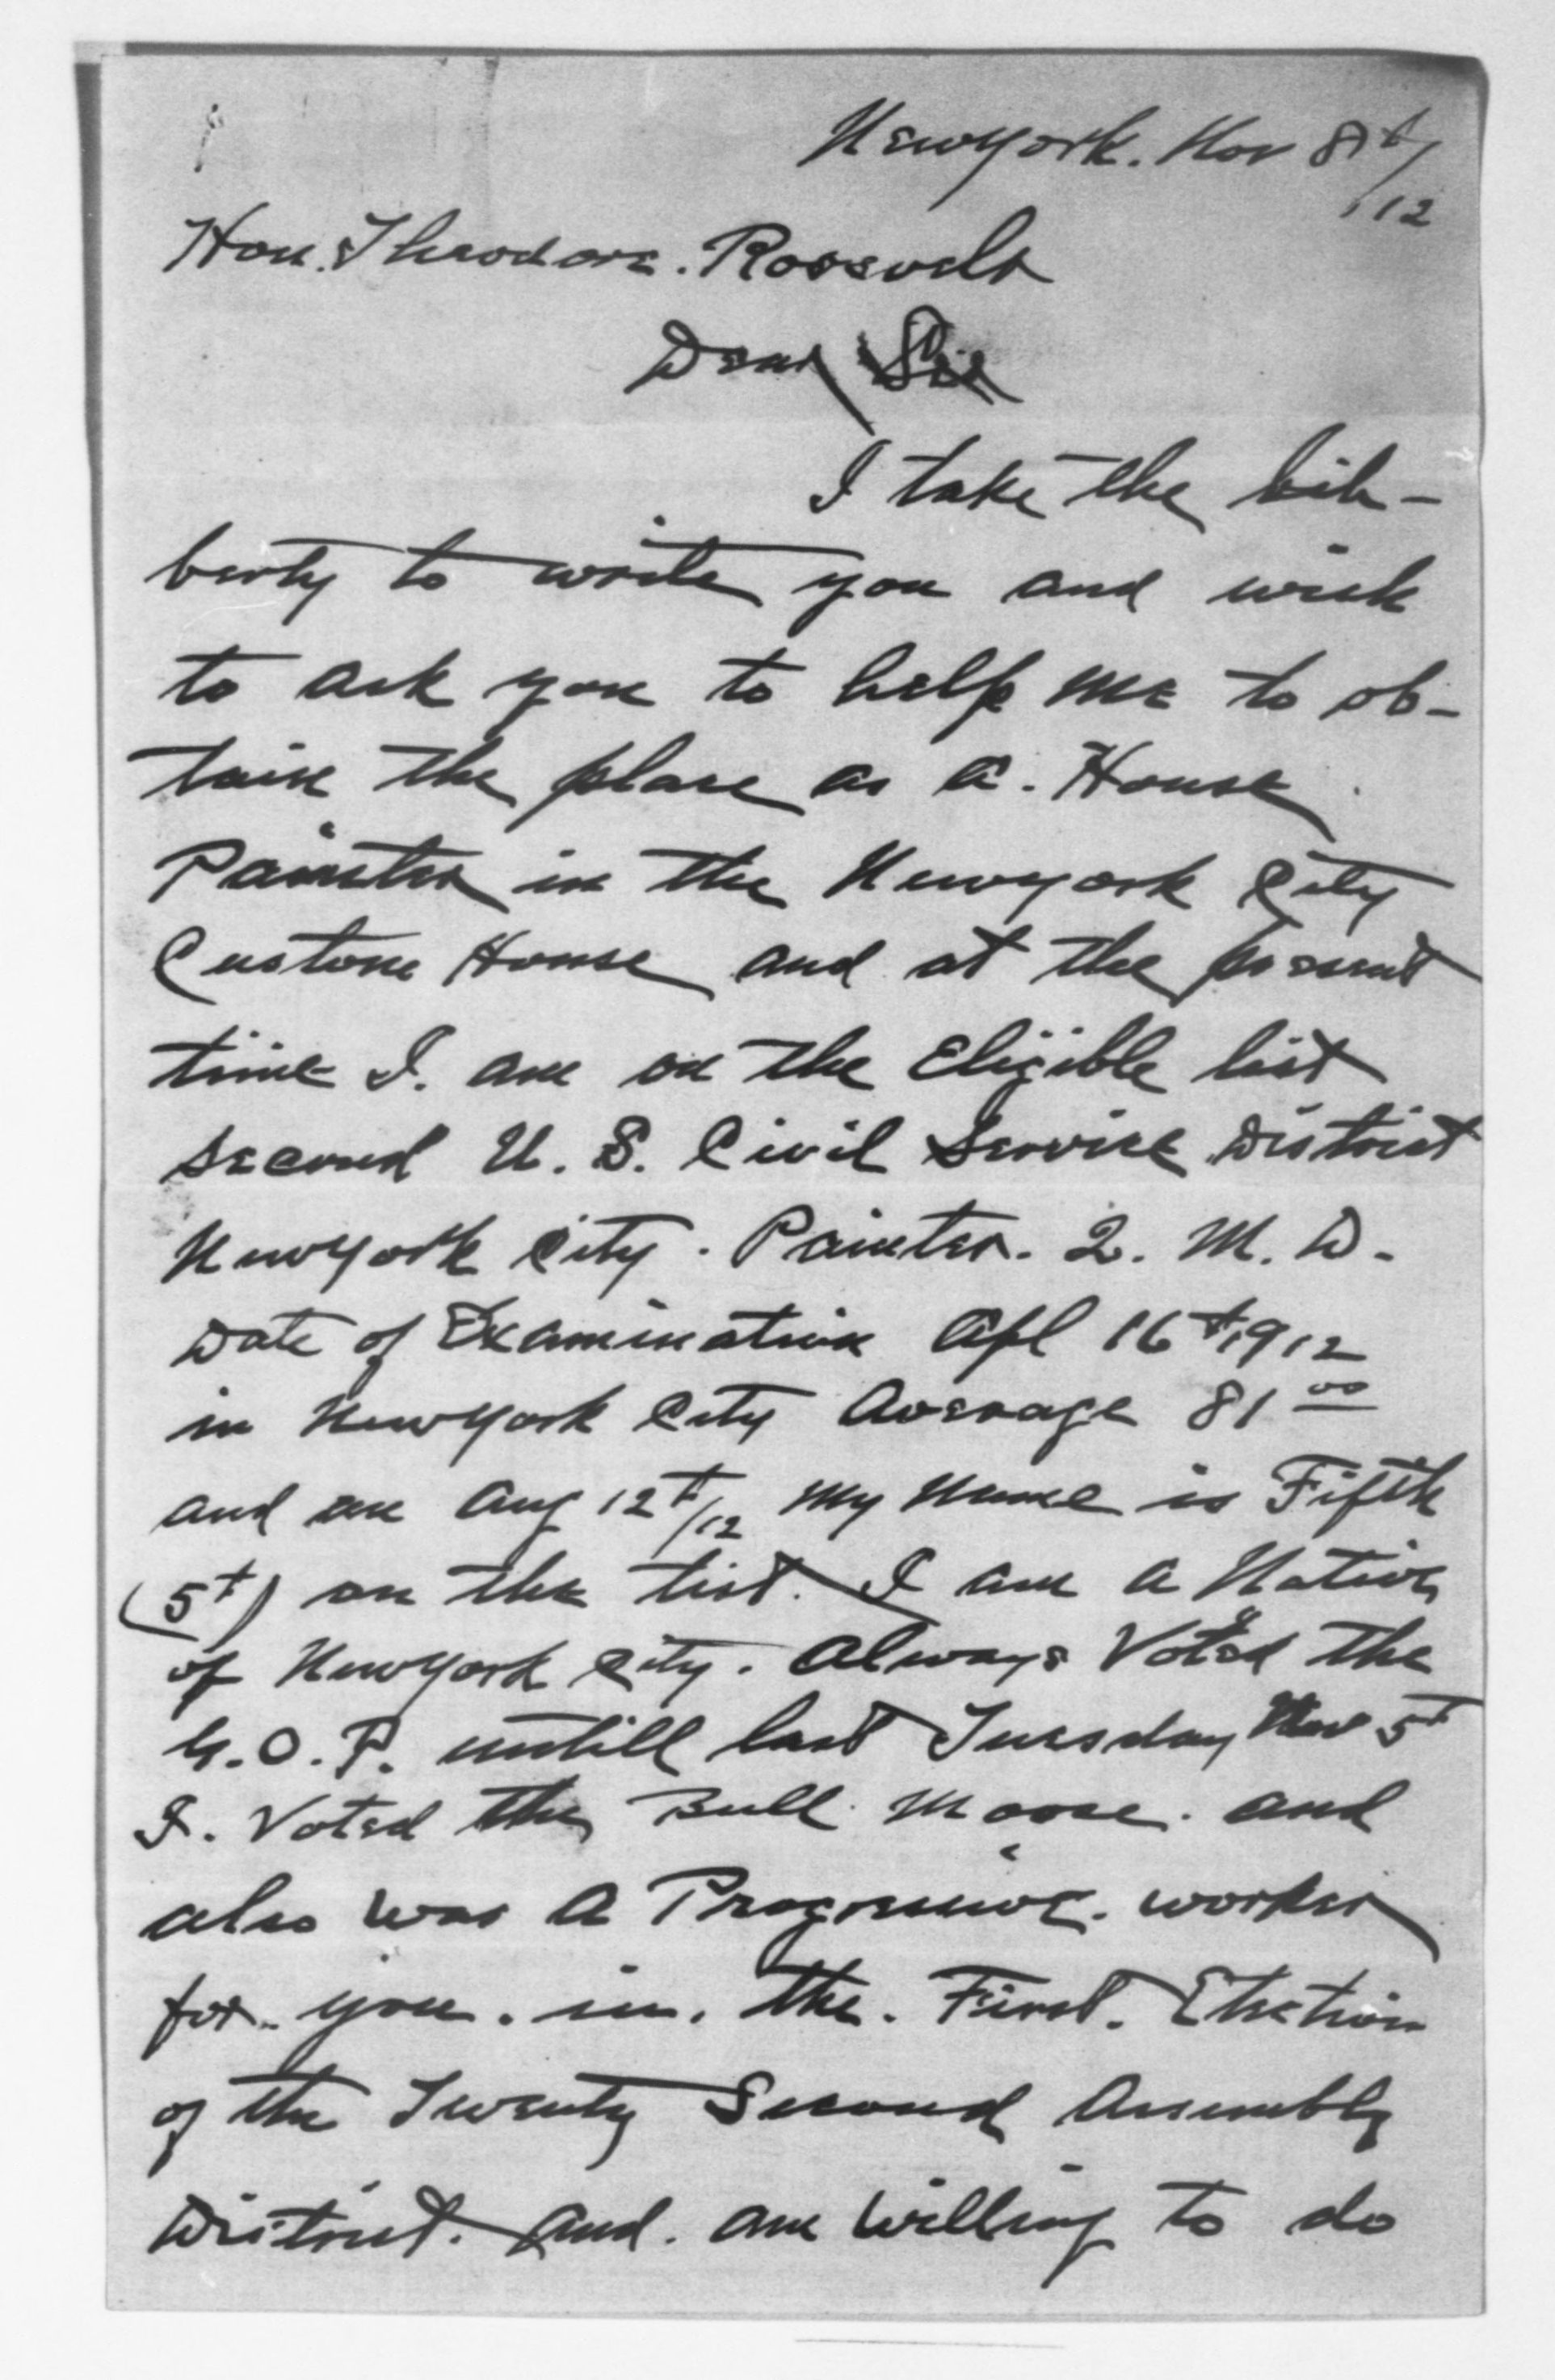 New York. Nov 8th/12
Hon. Theodore. Roosevelt
Dear Sir
I take the lib-
berty to write you and wish
to ask you to help me to ob-
tain the place as a. House
Painter in the New york City
Custom House and at the present
time I. am on the Eligible list
second U. S. Civil Service District
New York City. Painter. 2. M. D.
Date of Examination Apl 16th 1912
in New York City Average 81 00
and on Aug 12t/12 my name is Fifth
(5t) on the list. I am a Native
of New York City. Always Voted the
G.O.P. untill last Tuesday Nov 5t
I. Voted the Bull Moose. and
also was a Progressive. worker
for. you. in. the. First. Election
of the Twenty Second Assembly
District. And. am willing to do